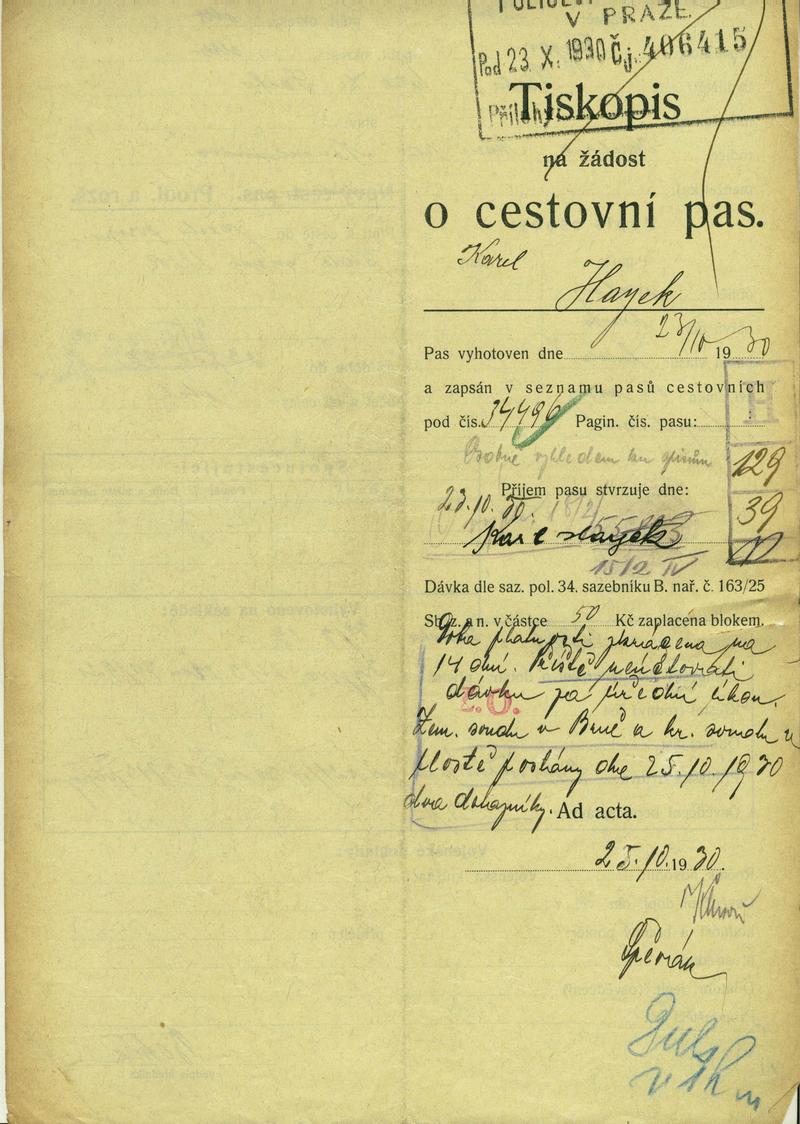 V PRAZE
Pod 23 X. 1930 Čj. 406415
Přílohy
Tiskopis
na žádost
o cestovní pas.
Karel
Hayek
Pas vyhotoven dne 23/10 1930
a zapsán v seznamu pasů cestovních
pod čís. 34496 Pagin. čís. pasu:
Osobně vzhledem ku spisům
129
Příjem pasu stvrzuje dne:
23.10.30.
39
Karel Hayek
15/2 IV
Dávka dle saz. pol. 34. sazebníku B. nař. č. 163/25
Sb. z. a n. v částce 50 Kč zaplacena blokem.
Doba platnosti zkrácena na
14 dní. Příště neúčtovati
dávku za úřední úkon.
Zem. soudu v Brně a kr. soudu v
poslány dne 25.10.1930
dva dotazníky. Ad acta.
25.10.1930.